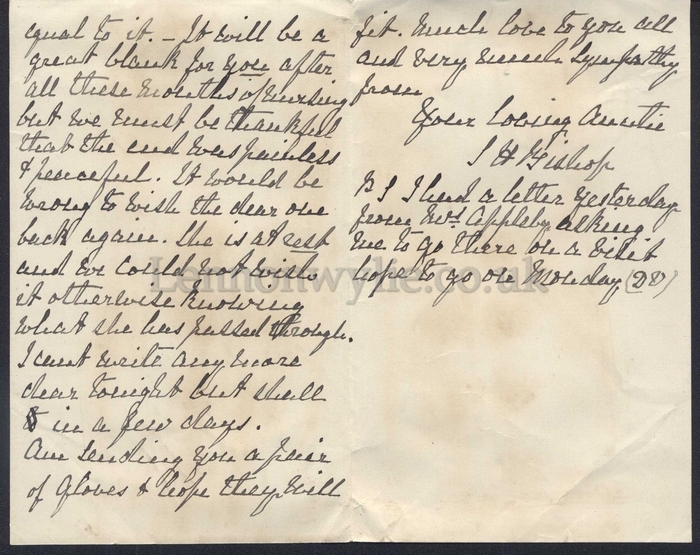 equal to it. – It will be a
great blank for you after
all these months of nursing
but we must be thankful
that the end was painless
& peaceful. It would be
wrong to wish the dear one
back again. She is at rest
and we could not wish
it otherwise knowing
what she has passed through.
I cant write any more
dear tonight but shall
in a few days.
Am sending you a pair
of gloves & hope they will
fit. Much love to you all
and very much sympathy
from
Your loving Auntie
S H Bishop
P S I had a letter yesterday
from Mrs Appleby asking
me to go there on a visit
hope to go on Monday (DV)
Lennonwylie.co.uk